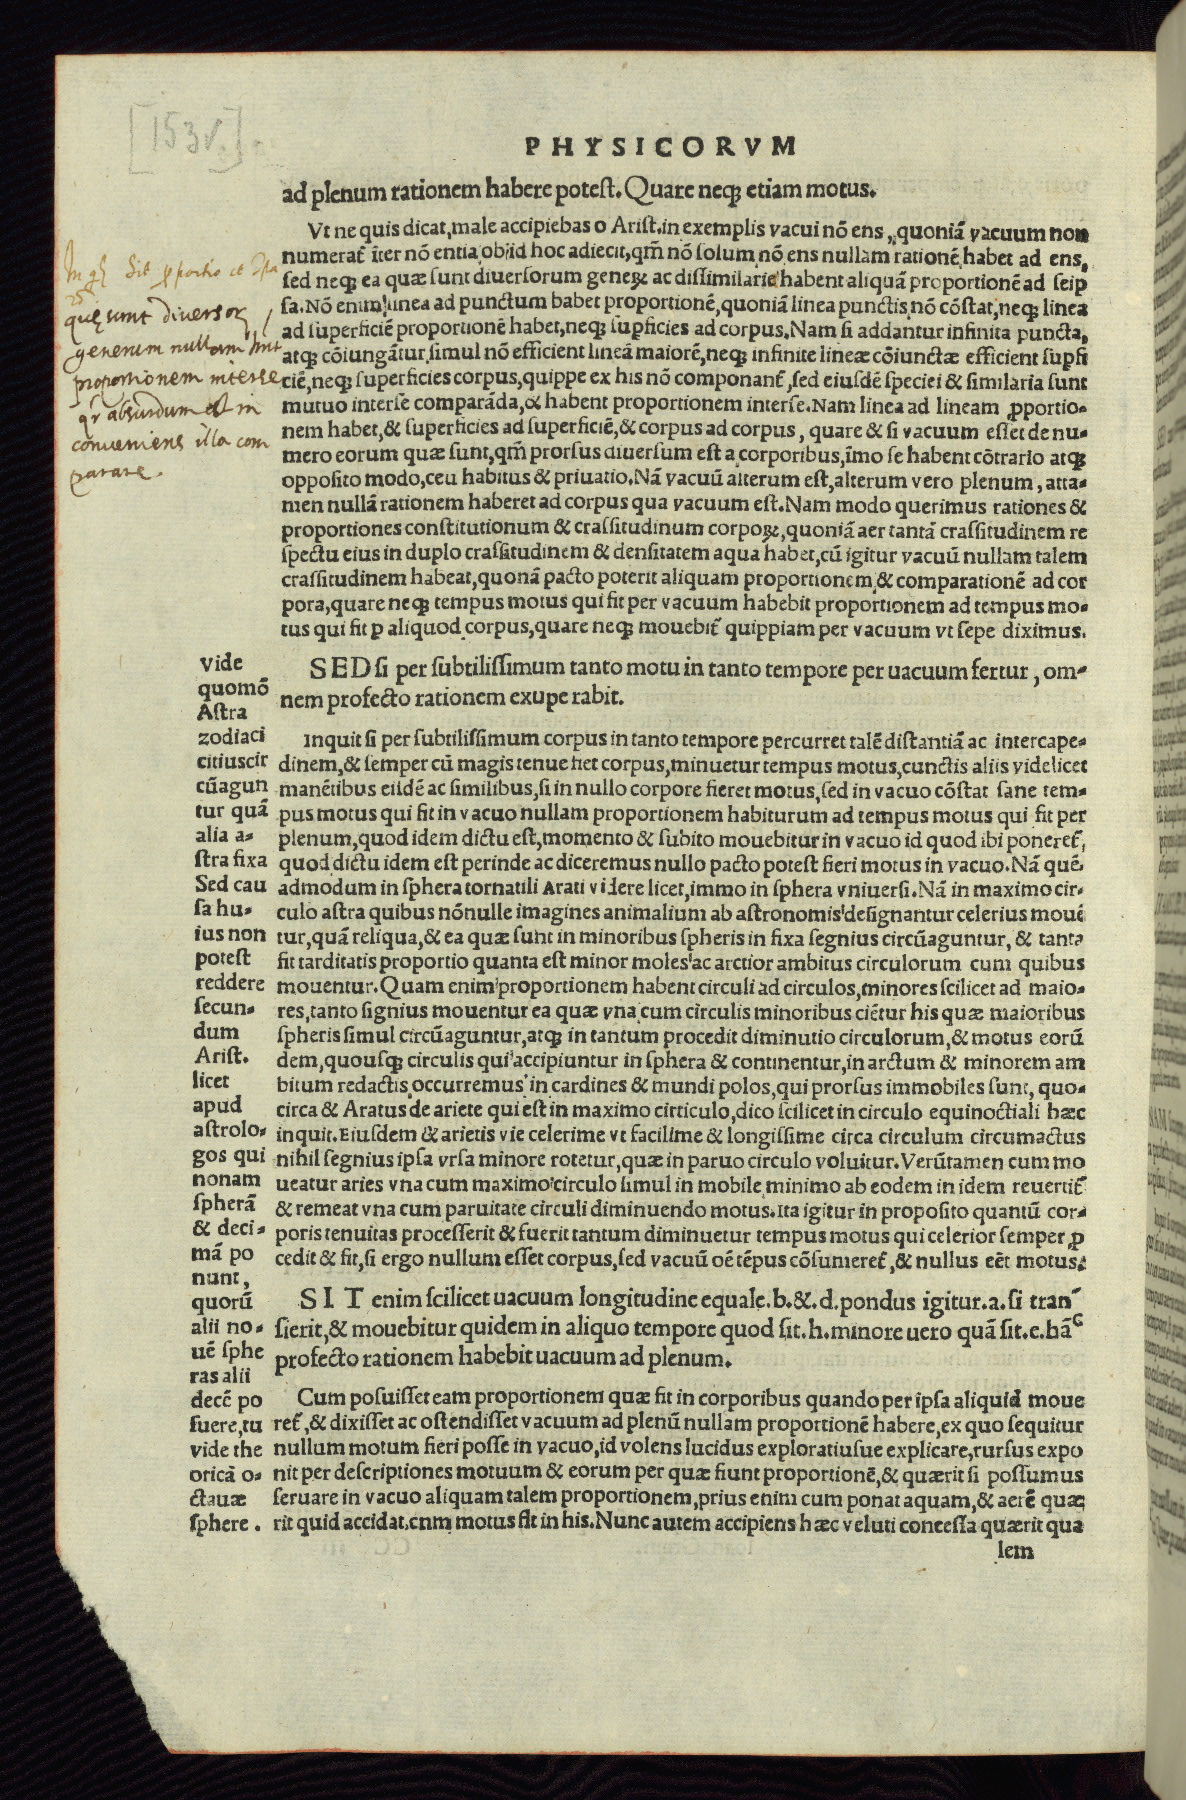 [153v].
PHYSICORVM
ad plenum rationem habere potest. Quare neqʒ etiam motus.
Vt ne quis dicat, male accipiebas o Arist. in exemplis vacui nō ens, quoniā vacuum non
numerat̃ īter nō entia, ob id hoc adiecit, qm̃ nō solum nō ens nullam rationē habet ad ens,
sed neqʒ ea quæ sunt diuersorum geneꝝ ac dissimilariē habent aliquā proportionē ad seip
sa. Nō enim linea ad punctum babet proportionē, quoniā linea punctis nō cōstat, neqʒ linea
ad superficiē proportionē habet, neqʒ suꝑficies ad corpus. Nam si addantur infinita puncta,
atqʒ cōiungātur simul nō efficient lineā maiorē, neqʒ infinite lineæ cōiunctæ efficient supfi
ciē, neqʒ superficies corpus, quippe ex his nō componant̃, sed eiusdē speciei & similaria sunt
mutuo interse comparāda, & habent proportionem interse. Nam linea ad lineam ꝓportio-
nem habet, & superficies ad superficiē, & corpus ad corpus, quare & si vacuum esset de nu-
mero eorum quæ sunt, qm̃ prorsus diuersum est a corporibus, īmo se habent cōtrario atqʒ
opposito modo, ceu habitus & priuatio. Nā vacuū alterum est, alterum vero plenum, atta-
men nullā rationem haberet ad corpus qua vacuum est. Nam modo querimus rationes &
proportiones constitutionum & crassitudinum corpoꝝ, quoniā aer tantā crassitudinem re
spectu eius in duplo crassitudinem & densitatem aqua habet, cū igitur vacuū nullam talem
crassitudinem habeat, quonā pacto poterit aliquam proportionem & comparationē ad cor
pora, quare neqʒ tempus motus qui fit per vacuum habebit proportionem ad tempus mo-
tus qui fit ꝑ aliquod corpus, quare neqʒ mouebit̃ quippiam per vacuum vt sepe diximus.
quę sunt diversoꝝ
generum nullam hñt
proportionem interse
qr absurdum est in
conveniens illa com
parare.
SED si per subtilissimum tanto motu in tanto tempore per uacuum fertur, om-
nem profecto rationem exupe rabit.
Inquit si per subtilissimum corpus in tanto tempore percurret talē distantiā ac intercape-
dinem, & semper cū magis tenue fiet corpus, minuetur tempus motus, cunctis aliis videlicet
manētibus eiidē ac similibus, si in nullo corpore fieret motus, sed in vacuo cōstat sane tem-
pus motus qui fit in vacuo nullam proportionem habiturum ad tempus motus qui fit per
plenum, quod idem dictu est, momento & subito mouebitur in vacuo id quod ibi poneret̃,
quod dictu idem est perinde ac diceremus nullo pacto potest fieri motus in vacuo. Nā quē
admodum in sphera tornatili Arati videre licet, immo in sphera vniuersi. Nā in maximo cir-
culo astra quibus nōnulle imagines animalium ab astronomis designantur celerius mouē
tur, quā reliqua, & ea quæ sunt in minoribus spheris in fixa segnius circūaguntur, & tanta
fit tarditatis proportio quanta est minor moles ac arctior ambitus circulorum cum quibus
mouentur. Quam enim proportionem habent circuli ad circulos, minores scilicet ad maio-
res, tanto signius mouentur ea quæ vna cum circulis minoribus ciētur his quæ maioribus
spheris simul circūaguntur, atqʒ in tantum procedit diminutio circulorum, & motus eorū
dem, quousqʒ circulis qui accipiuntur in sphera & continentur, in arctum & minorem am
bitum redactis occurremus in cardines & mundi polos, qui prorsus immobiles sunt, quo-
circa & Aratus de ariete qui est in maximo cirticulo, dico scilicet in circulo equinoctiali hæc
inquit. Eiusdem & arietis vie celerime vt facilime & longissime circa circulum circumactus
nihil segnius ipsa vrsa minore rotetur, quæ in paruo circulo voluitur. Verūtamen cum mo
ueatur aries vna cum maximo circulo simul in mobile minimo ab eodem in idem reuertit̃
& remeat vna cum paruitate circuli diminuendo motus. Ita igitur in proposito quantū cor-
poris tenuitas processerit & fuerit tantum diminuetur tempus motus qui celerior semper ꝓ
cedit & fit, si ergo nullum esset corpus, sed vacuū oē tēpus cōsumeret̃, & nullus eēt motus.
Vide
quomō
Astra
zodiaci
citiuscir
cūagun
tur quā
alia a-
stra fixa
Sed cau
sa hu-
ius non
potest
reddere
secun-
dum
Arist.
licet
apud
astrolo-
gos qui
nonam
spherā
& deci-
mā po
nunt,
quorū
alii no-
uē sphe
ras alii
decē po
suere, tu
vide the
oricā o-
ctauæ
sphere.
SIT enim scilicet uacuum longitudine equale. b. &. d. pondus igitur. a. si tran
sierit, & mouebitur quidem in aliquo tempore quod sit. h. minore uero quā sit. e. hāc
profecto rationem habebit uacuum ad plenum.
Cum posuisset eam proportionem quæ fit in corporibus quando per ipsa aliquid moue
ret̃, & dixisset ac ostendisset vacuum ad plenū nullam proportionē habere, ex quo sequitur
nullum motum fieri posse in vacuo, id volens lucidus exploratiusue explicare, rursus expo
nit per descriptiones motuum & eorum per quæ fiunt proportionē, & quærit si possumus
seruare in vacuo aliquam talem proportionem, prius enim cum ponat aquam, & aerē quæ
rit quid accidat. cnm motus fit in his. Nunc autem accipiens hæc veluti concessa quærit qua
lem